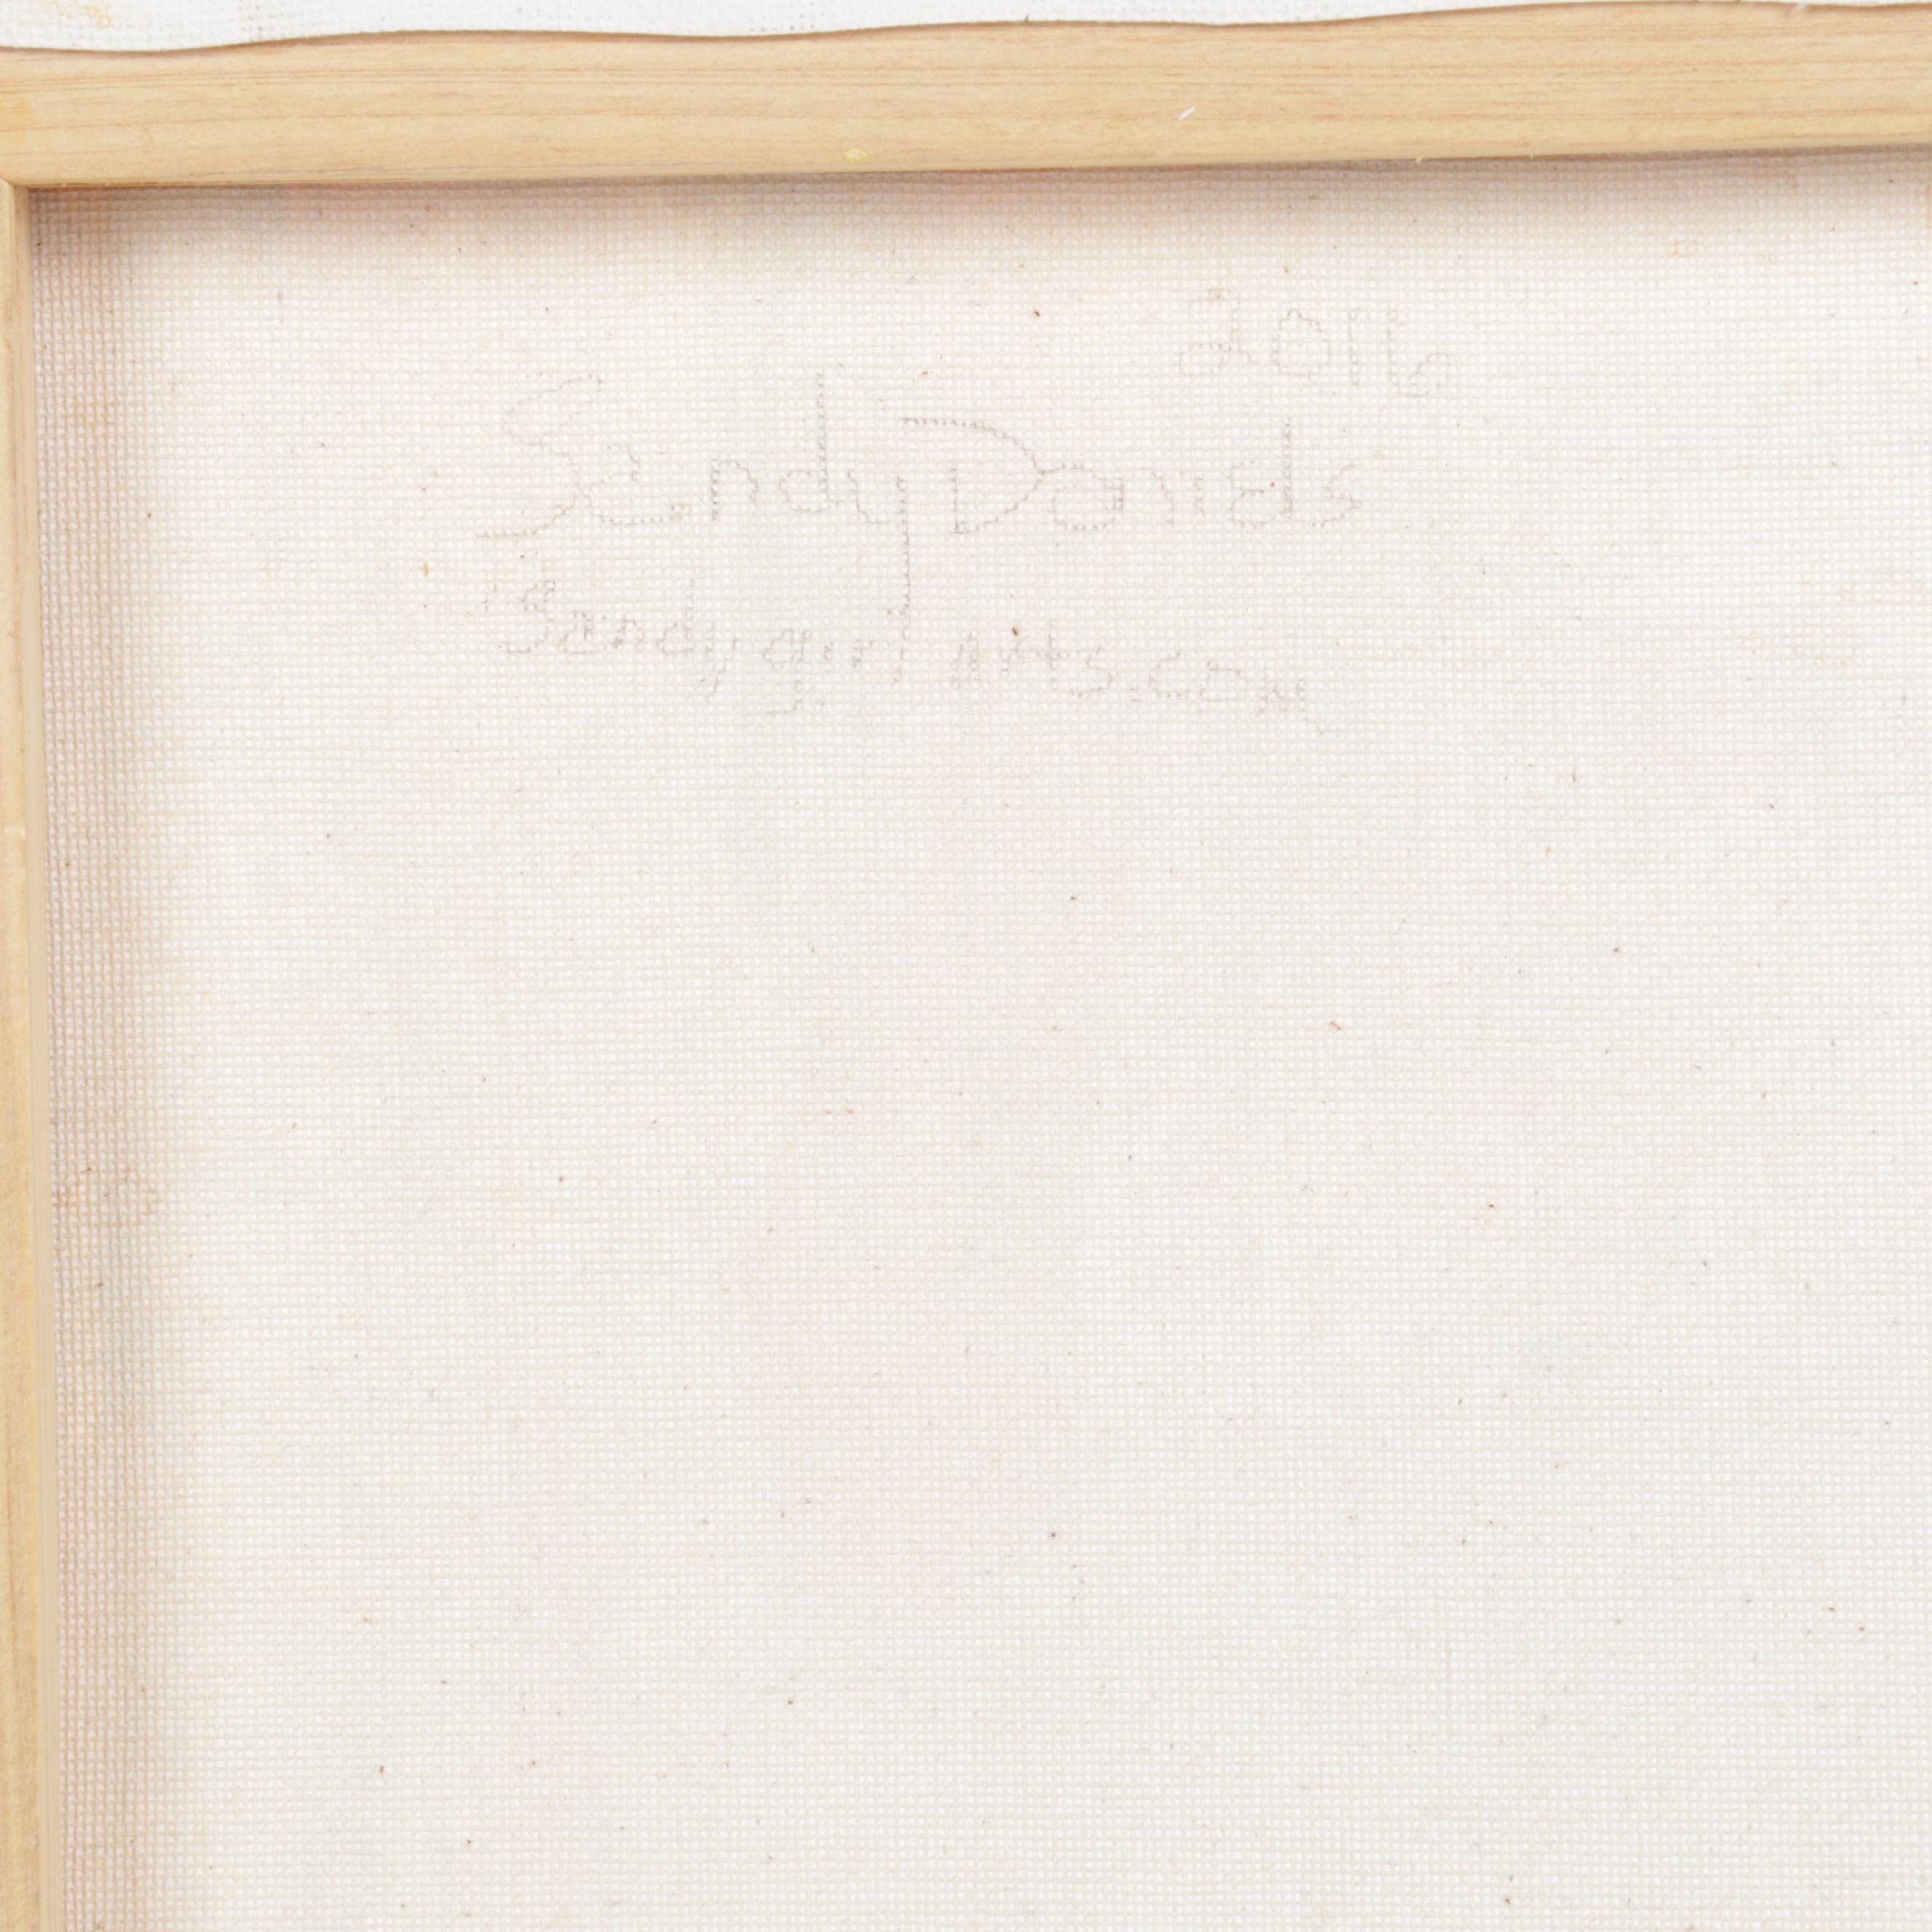 Sandy Daniels
Sandygirl Arts.com